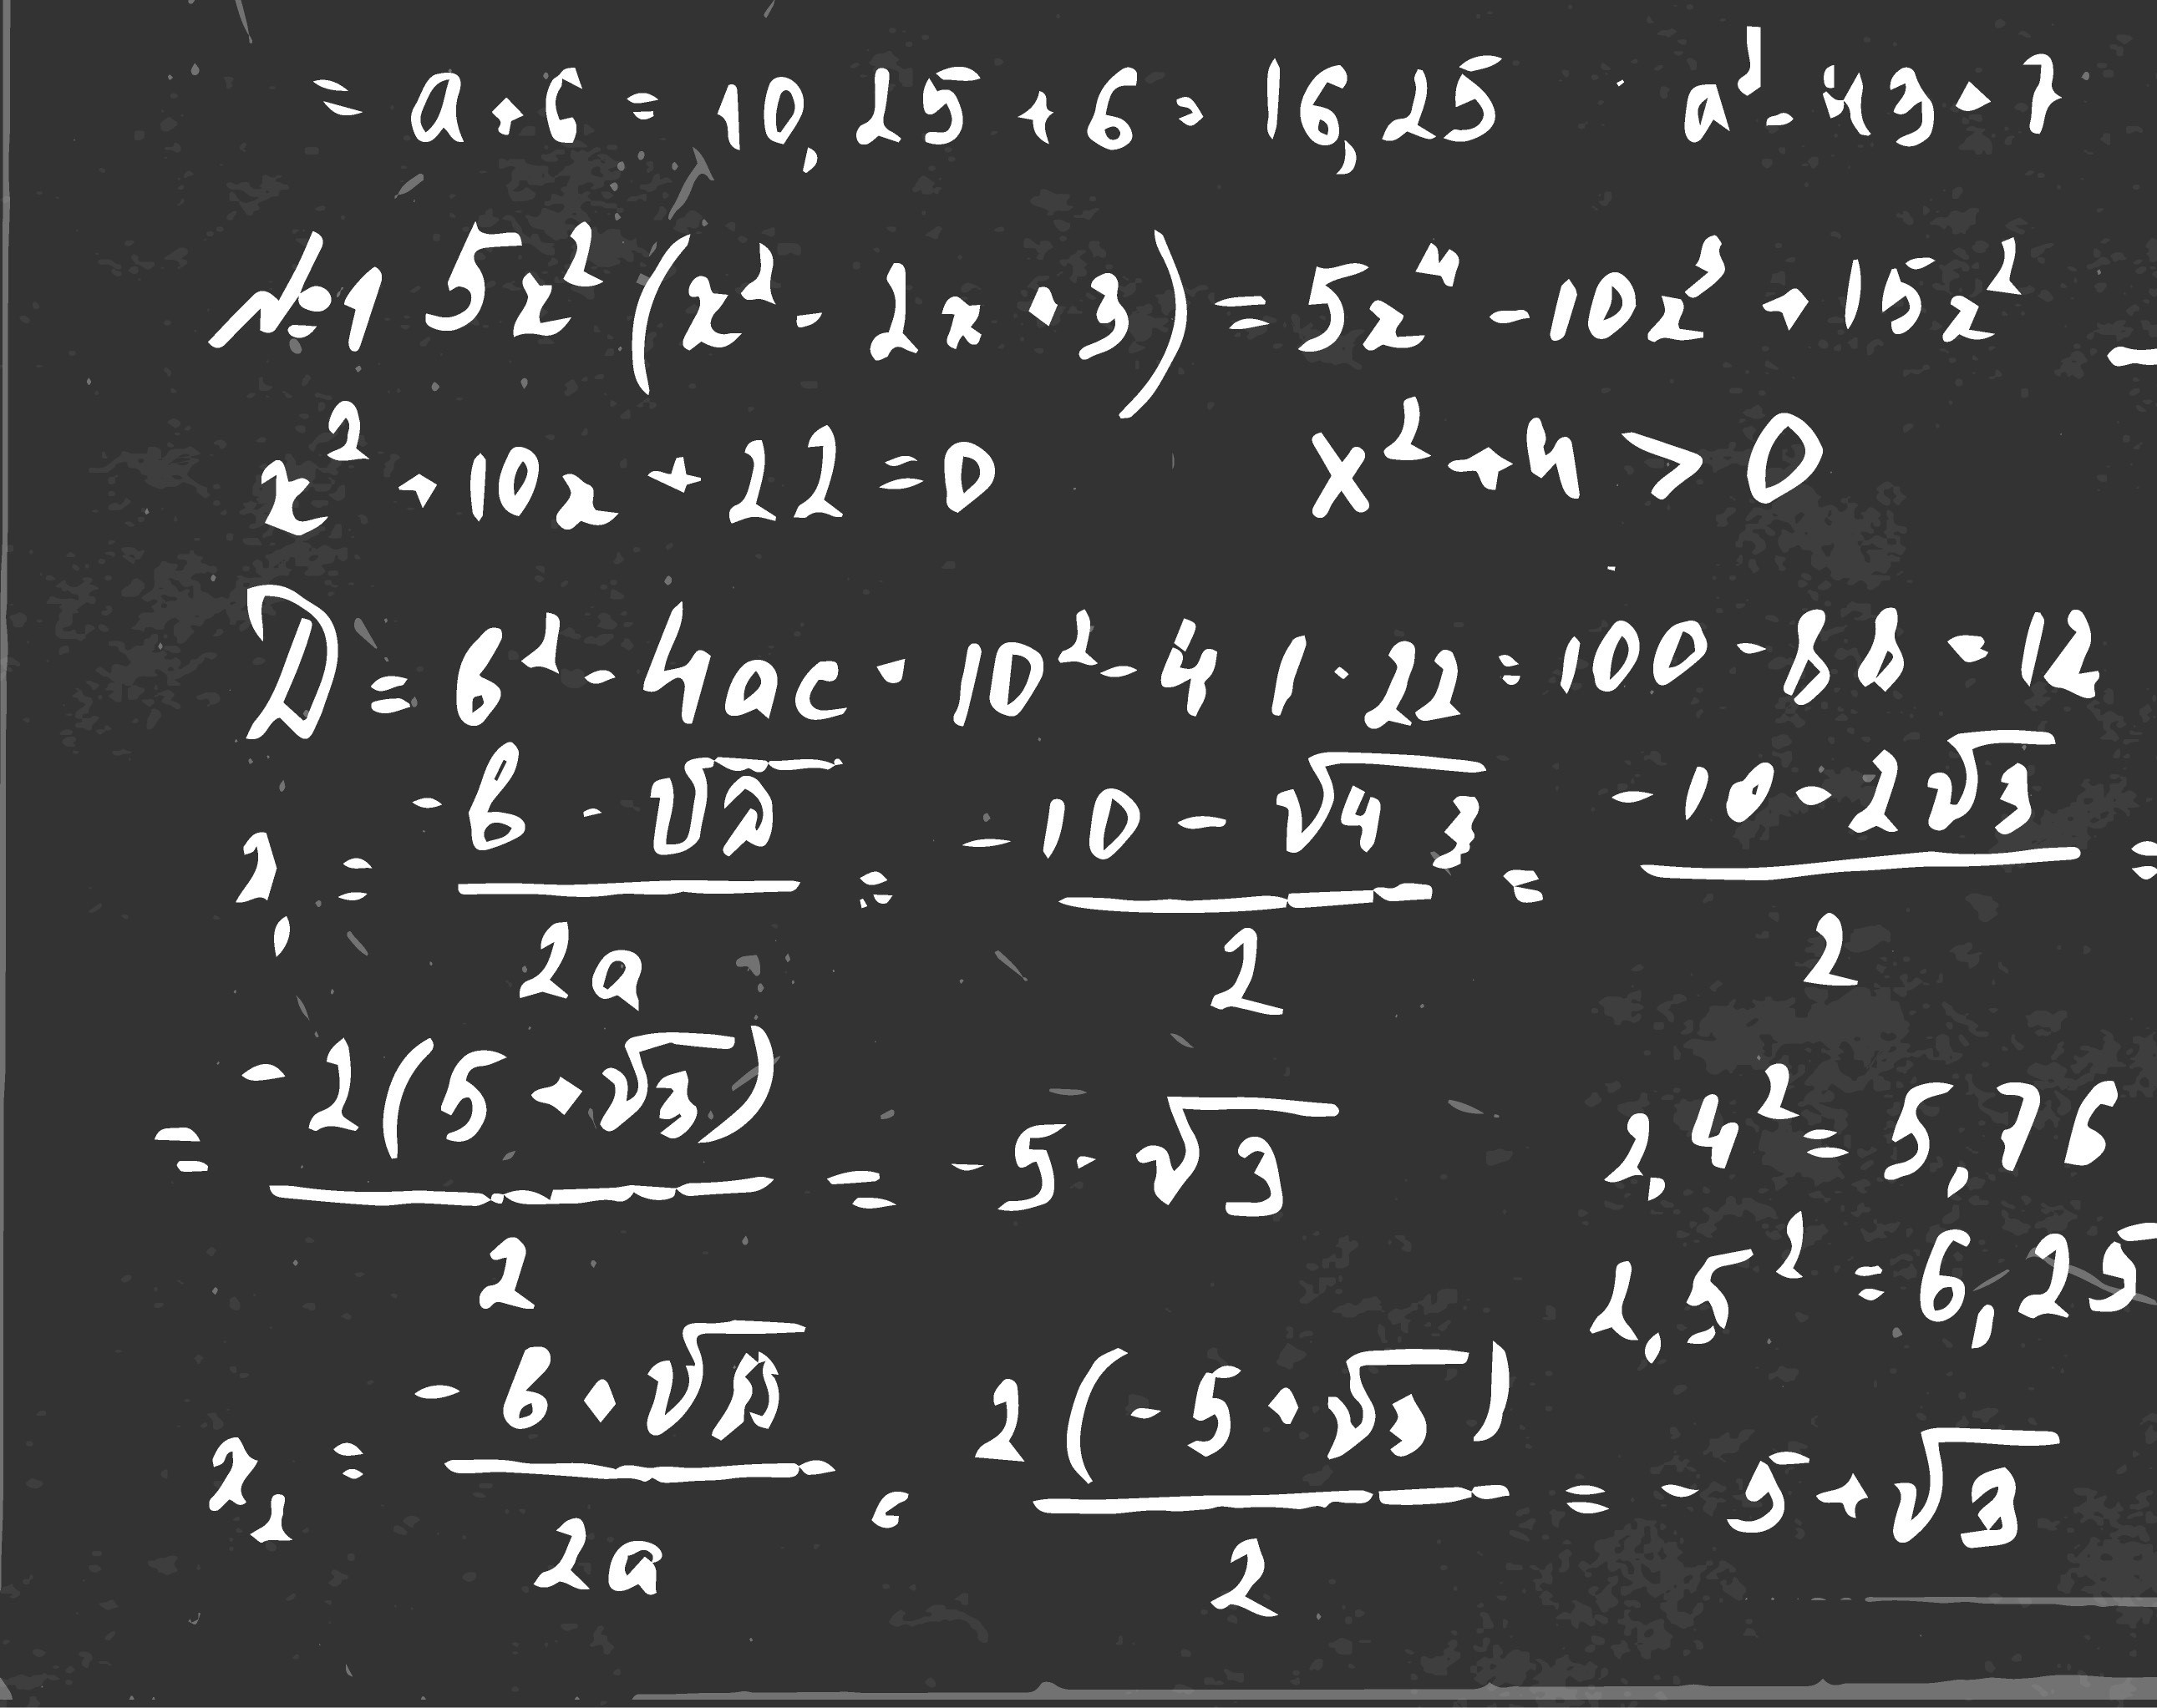 = a + 6 = 10,25 + 6 = 16,25 a² - 43 + 7
№1 5x² (x² - 2x + 3) = 5x⁴ - 10x³ + 15x²
x² + 10x + 22 = 0 x² + 4 > 0
D = b² - 4ac = 10² - 4 1 · 22 = 100 - 88 = 12
x₁ = (-b - √D)/2a = (-10 - √4 3)/2 = (-10 - 2√3)/2 =
= -2(5 + √3)/2 = -5 - √3 2,4² = 5,76
2,5² = 6,25
x₂ = (-b + √D)/2a = 2(-5 + √3)/2 = -5 + √3